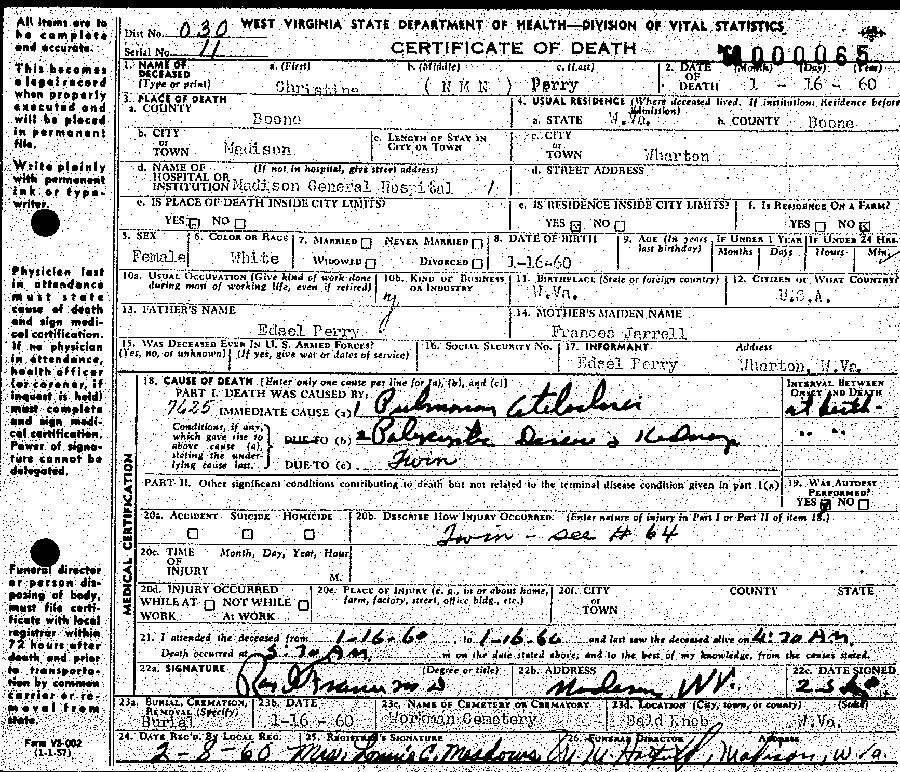 All items are to be complete and accurate.
This becomes a legal record when properly executed and will be placed in permanent file.
Write plainly with permanent ink or typewriter.
Physician last in attendance must state cause of death and sign medical certification. If no physician in attendance, health officer (or coroner, if inquest is held) must complete and sign medical certification. Power of signature cannot be delegated.
Funeral director or person disposing of body, must file certificate with local registrar within 72 hours after death and prior to transportation by common carrier or removal from state.
Form VS-002
(1-1-57)
WEST VIRGINIA STATE DEPARTMENT OF HEALTH—DIVISION OF VITAL STATISTICS
Dist No. 030
Serial No. 11
CERTIFICATE OF DEATH
000065
1. NAME OF DECEASED (Type or print) a. (First) b. (Middle) c. (Last) 2. DATE OF DEATH (Month) (Day) (Year)
Christine (NMN) Perry 1 - 16 - 60
3. PLACE OF DEATH 4. USUAL RESIDENCE (Where deceased lived. If institution: Residence before admission)
a. COUNTY Boone a. STATE W.Va. b. COUNTY Boone
b. CITY or TOWN Madison c. LENGTH OF STAY IN CITY OR TOWN c. CITY or TOWN Wharton
d. NAME OF HOSPITAL OR INSTITUTION (If not in hospital, give street address) Madison General Hospital d. STREET ADDRESS
e. IS PLACE OF DEATH INSIDE CITY LIMITS? e. IS RESIDENCE INSIDE CITY LIMITS? f. IS RESIDENCE ON A FARM?
YES NO YES NO YES NO
5. SEX 6. COLOR OR RACE 7. MARRIED NEVER MARRIED 8. DATE OF BIRTH 9. AGE (In years last birthday) IF UNDER 1 YEAR IF UNDER 24 HRS.
Female White WIDOWED DIVORCED 1-16-60 Months Days Hours Min.
10a. USUAL OCCUPATION (Give kind of work done during most of working life, even if retired) 10b. KIND OF BUSINESS OR INDUSTRY 11. BIRTHPLACE (State or foreign country) 12. CITIZEN OF WHAT COUNTRY?
W.Va. U.S.A.
13. FATHER'S NAME 14. MOTHER'S MAIDEN NAME
Edsel Perry Frances Jarrell
15. WAS DECEASED EVER IN U. S. ARMED FORCES? 16. SOCIAL SECURITY NO. 17. INFORMANT Address
(Yes, no, or unknown) (If yes, give war or dates of service) Edsel Perry Wharton, W.Va.
MEDICAL CERTIFICATION
18. CAUSE OF DEATH [Enter only one cause per line for (a), (b), and (c)] INTERVAL BETWEEN ONSET AND DEATH
PART I. DEATH WAS CAUSED BY:
7625 IMMEDIATE CAUSE (a) Pulmonary at birth
Conditions, if any, which gave rise to above cause (a), stating the underlying cause last. DUE TO (b) Disease Kidney " "
DUE TO (c) Twin
PART II. Other significant conditions contributing to death but not related to the terminal disease condition given in part I(a) 19. WAS AUTOPSY PERFORMED?
YES NO
20a. ACCIDENT SUICIDE HOMICIDE 20b. DESCRIBE HOW INJURY OCCURRED. (Enter nature of injury in Part I or Part II of item 18.)
Twin - see # 64
20c. TIME OF INJURY Month, Day, Year, Hour M.
20d. INJURY OCCURRED WHILE AT WORK NOT WHILE AT WORK 20e. PLACE OF INJURY (e. g., in or about home, farm, factory, street, office bldg., etc.) 20f. CITY or TOWN COUNTY STATE
21. I attended the deceased from 1-16-60 to 1-16-60 and last saw the deceased alive on 4:30 AM
Death occurred at 5:30 AM m on the date stated above, and to the best of my knowledge, from the causes stated.
22a. SIGNATURE (Degree or title) 22b. ADDRESS 22c. DATE SIGNED
M D Madison W V.
23a. BURIAL, CREMATION, REMOVAL (Specify) 23b. DATE 23c. NAME OF CEMETERY OR CREMATORY 23d. LOCATION (City, town, or county) (State)
Burial 1-16-60 Workman Cemetery Bald Knob W.Va.
24. DATE REC'D. BY LOCAL REG. 25. REGISTRAR'S SIGNATURE 26. FUNERAL DIRECTOR Address
2-8-60 Mrs. Lonnie C. Meadows Madison, W. Va.